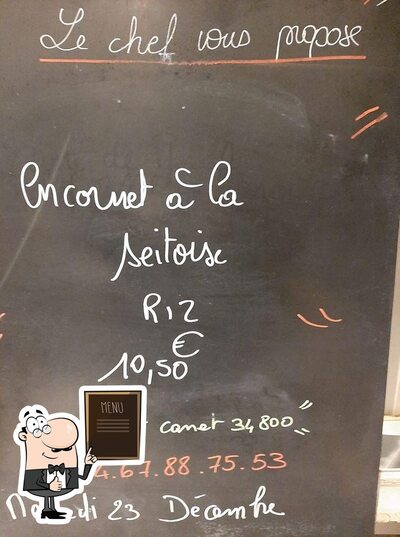 Le chef vous propose
Encornet à la
seitoise
Riz
€
10,50
MENU
canet 34800
4.67.88.75.53
di 23 Décembre